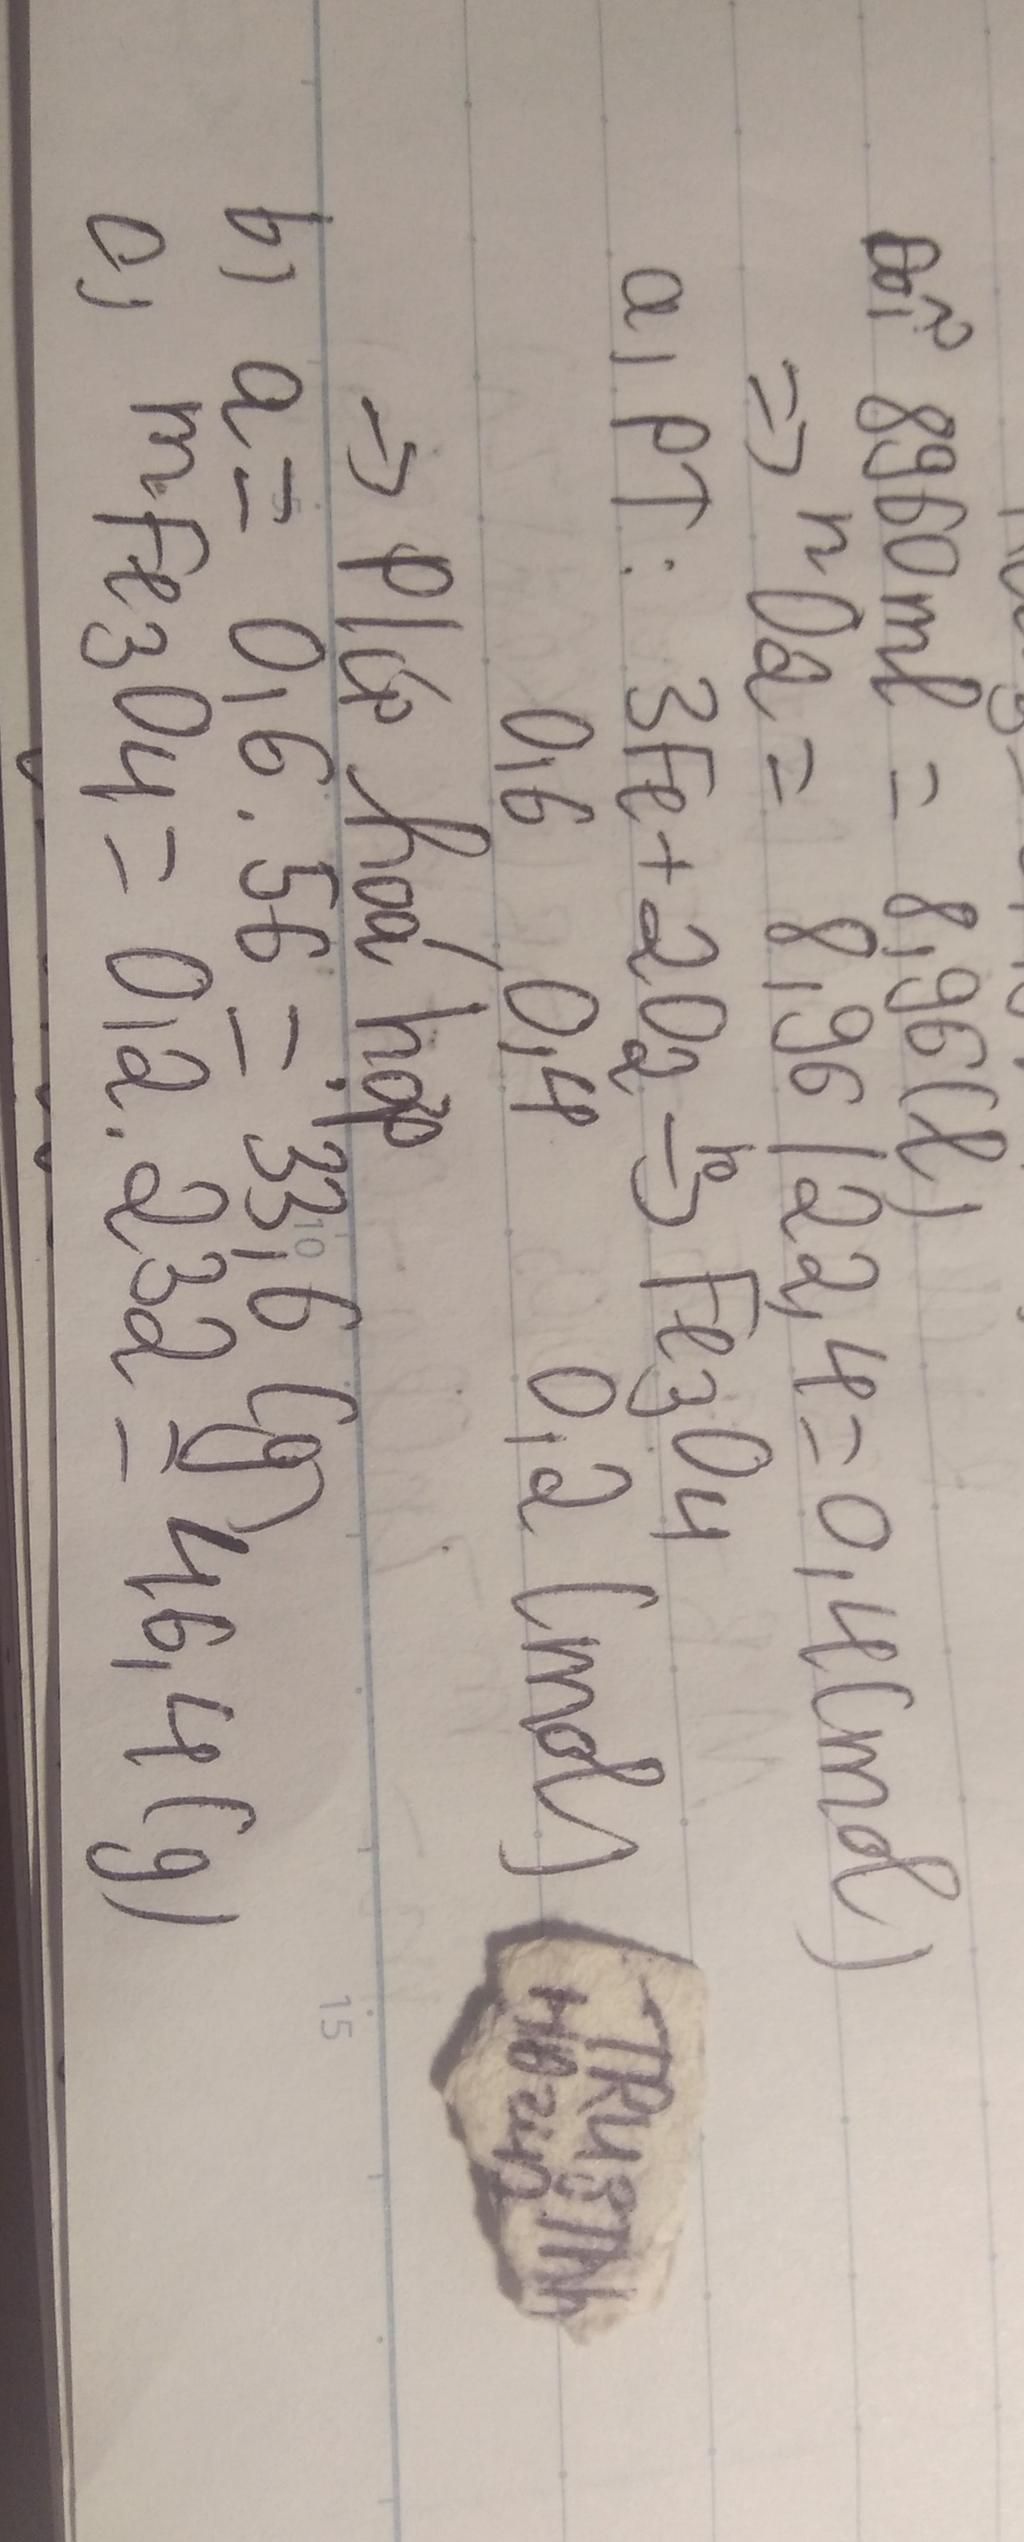 Đổi 8960ml = 8,96(l)
=> nO2 = 8,96/22,4 = 0,4(mol)
a, PT: 3Fe + 2O2 -to-> Fe3O4
0,6 0,4 0,2 (mol)
-> P/ứ hoá hợp
b, a = 0,6.56 = 33,6(g)
c, mFe3O4 = 0,2.232 = 46,4(g)
15
10